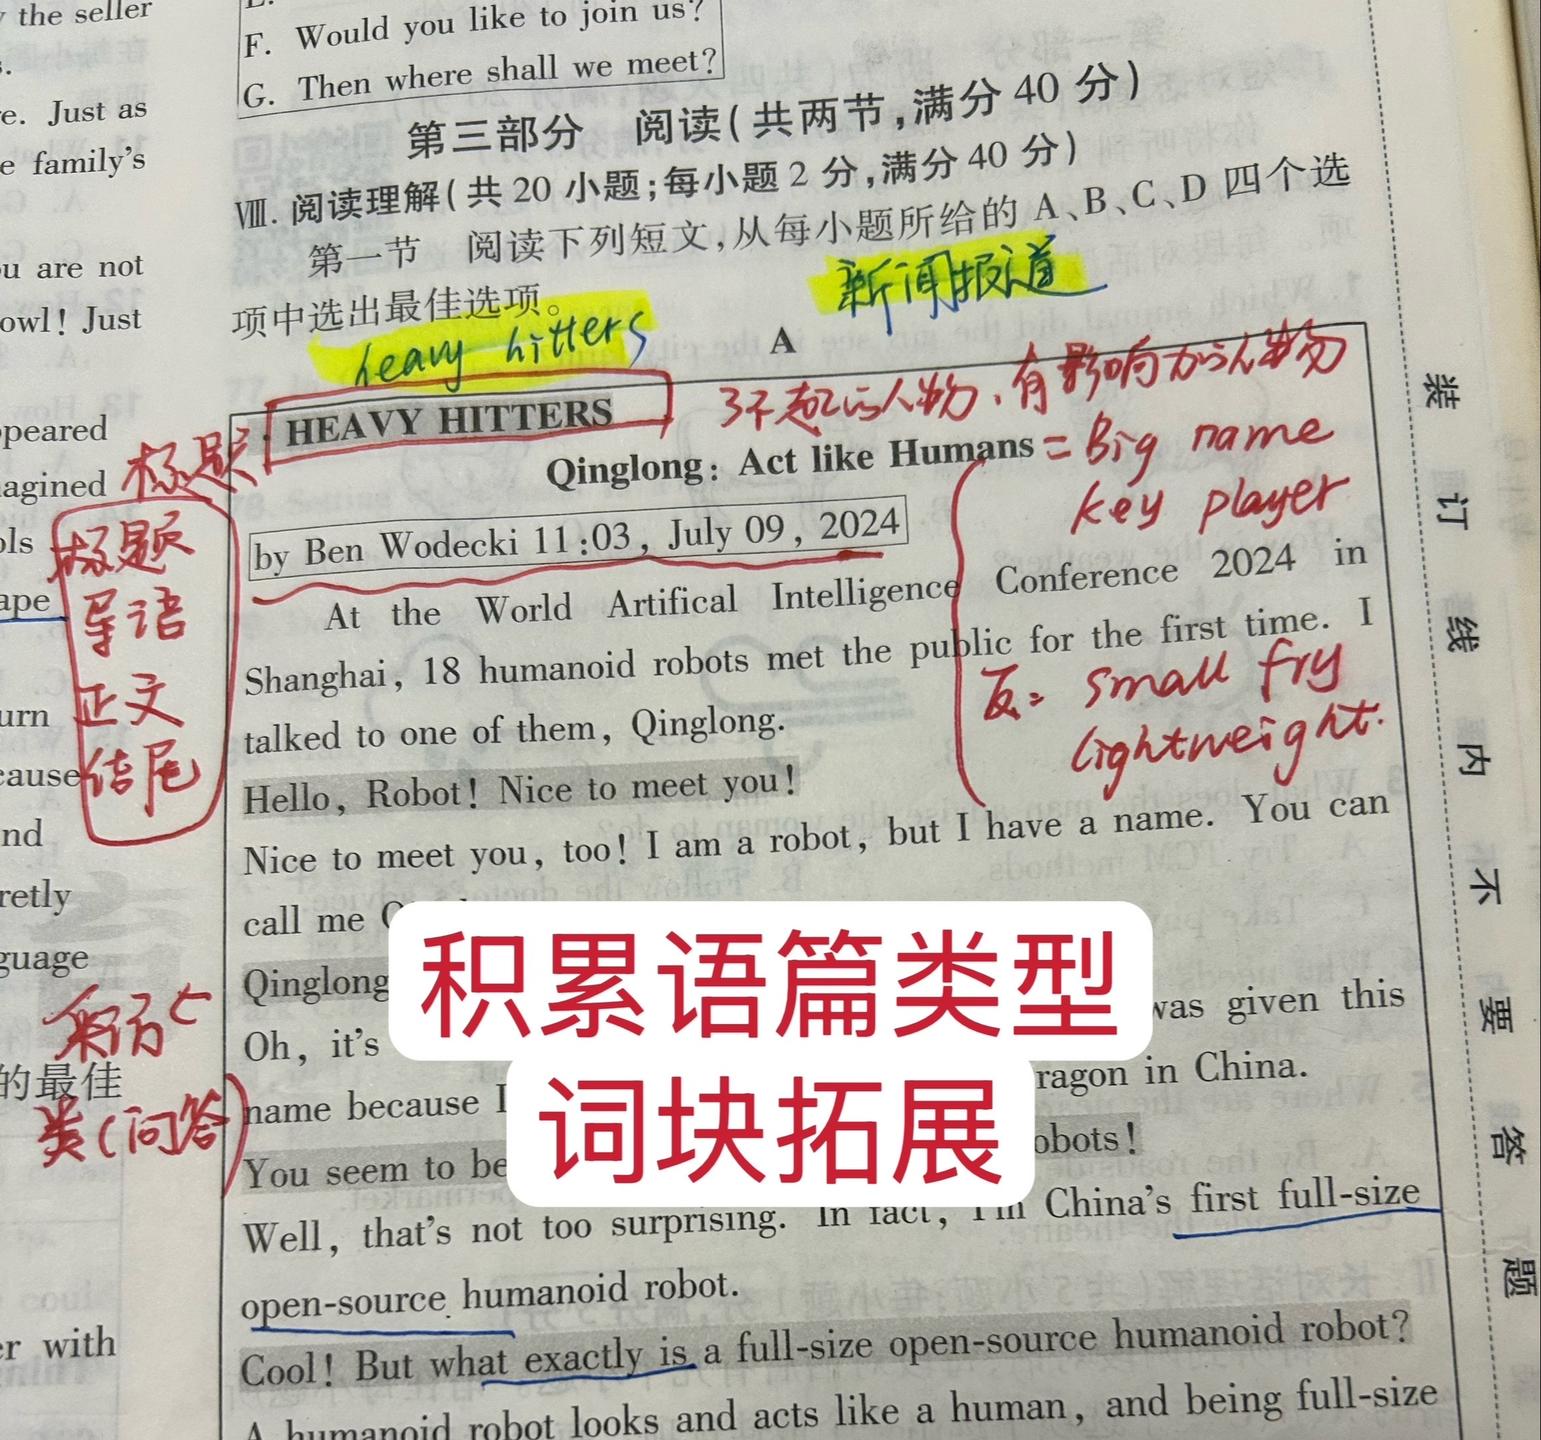 the seller
s.
re. Just as
e family's
u are not
owl! Just
ppeared
agined
ols
ape
urn
cause
nd
retly
guage
的最佳
er with
F. Would you like to join us?
G. Then where shall we meet?
第三部分 阅读(共两节,满分40分)
Ⅷ. 阅读理解(共20小题;每小题2分,满分40分)
第一节 阅读下列短文,从每小题所给的A、B、C、D四个选
项中选出最佳选项。
新闻报道
heavy hitters
A
HEAVY HITTERS
了不起的人物、有影响力的人物
标题
Qinglong: Act like Humans
= Big name
key player
by Ben Wodecki 11:03, July 09, 2024
标题
导语
正文
结尾
At the World Artifical Intelligence Conference 2024 in
Shanghai, 18 humanoid robots met the public for the first time. I
talked to one of them, Qinglong.
反= small fry
lightweight.
Hello, Robot! Nice to meet you!
Nice to meet you, too! I am a robot, but I have a name. You can
call me
Qinglong
Oh, it's was given this
name because I ragon in China.
You seem to be obots!
采访
类(问答)
积累语篇类型
词块拓展
Well, that's not too surprising. In fact, I'm China's first full-size
open-source humanoid robot.
Cool! But what exactly is a full-size open-source humanoid robot?
A humanoid robot looks and acts like a human, and being full-size
装
订
线
内
不
要
答
题